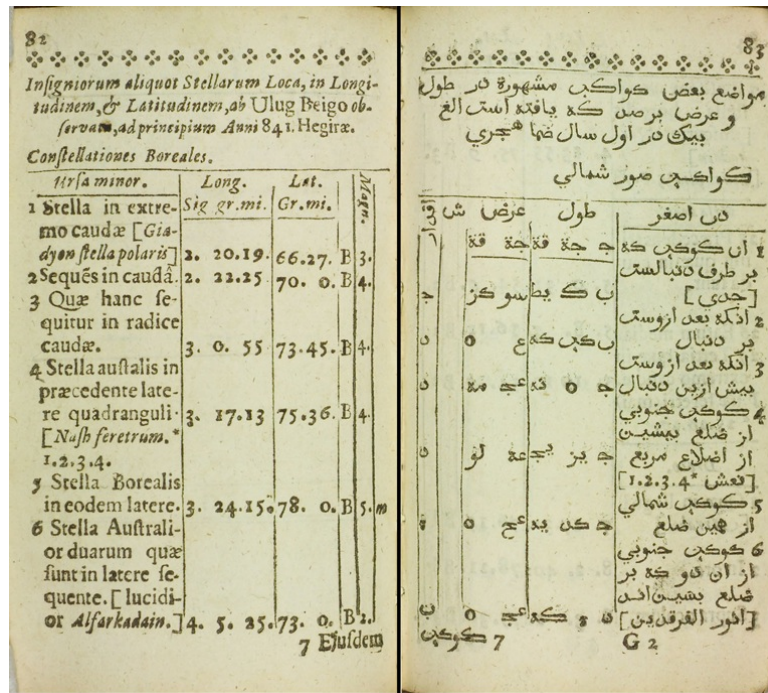 82
Insigniorum aliquot Stellarum Loca, in Longi-
tudinem, & Latitudinem, ab Ulug Beigo ob-
servata, ad principium Anni 841. Hegiræ.
Constellationes Boreales.
Ursa minor. Long. Lat. Magn.
1 Stella in extre- Sig gr. mi. Gr. mi.
mo caudæ [Gia-
dyon stella polaris] 2. 20.19. 66.27. B 3.
2 Sequēs in caudâ. 2. 22.25 70. 0. B 4.
3 Quæ hanc se-
quitur in radice
caudæ. 3. 0. 55 73.45. B 4.
4 Stella australis in
præcedente late-
re quadranguli. 3. 17.13 75.36. B 4.
[Nash feretrum.*
1.2.3.4.
5 Stella Borealis
in eodem latere. 3. 24.15. 78. 0. B 5. m
6 Stella Australi-
or duarum quæ
sunt in latere se-
quente. [lucidi-
or Alfarkadain.] 4. 5. 25. 73. 0. B 2.
7 Ejusdem
83
مواضع بعض كواكب مشهوره در طول
و عرض برصد كه يافته است الغ
بيك در اول سال ضما هجري
كواكب صور شمالي
دب اصغر طول عرض ش اقدار
1 ان كوكب كه
بر طرف دنبالست
[جدي] ب ك يط سو كز ج
2 انكه بعد ازوست
بر دنبال ب كب كه ع ٥ د
3 انكه بعد ازوست
بيش ازين دنبال ج ٥ نه عج مه د
4 كوكب جنوبي
از ضلع بيشين
از اضلاع مربع ج يز يج عه لو د
[نعش * 1.2.3.4]
5 كوكب شمالي
از همين ضلع ج كد يه عح ٥
6 كوكب جنوبي
از ان دو كه بر
ضلع بسين اند
[انور الفرقدين] د ه كه عج ٥ ب
7 كوكب
G 2